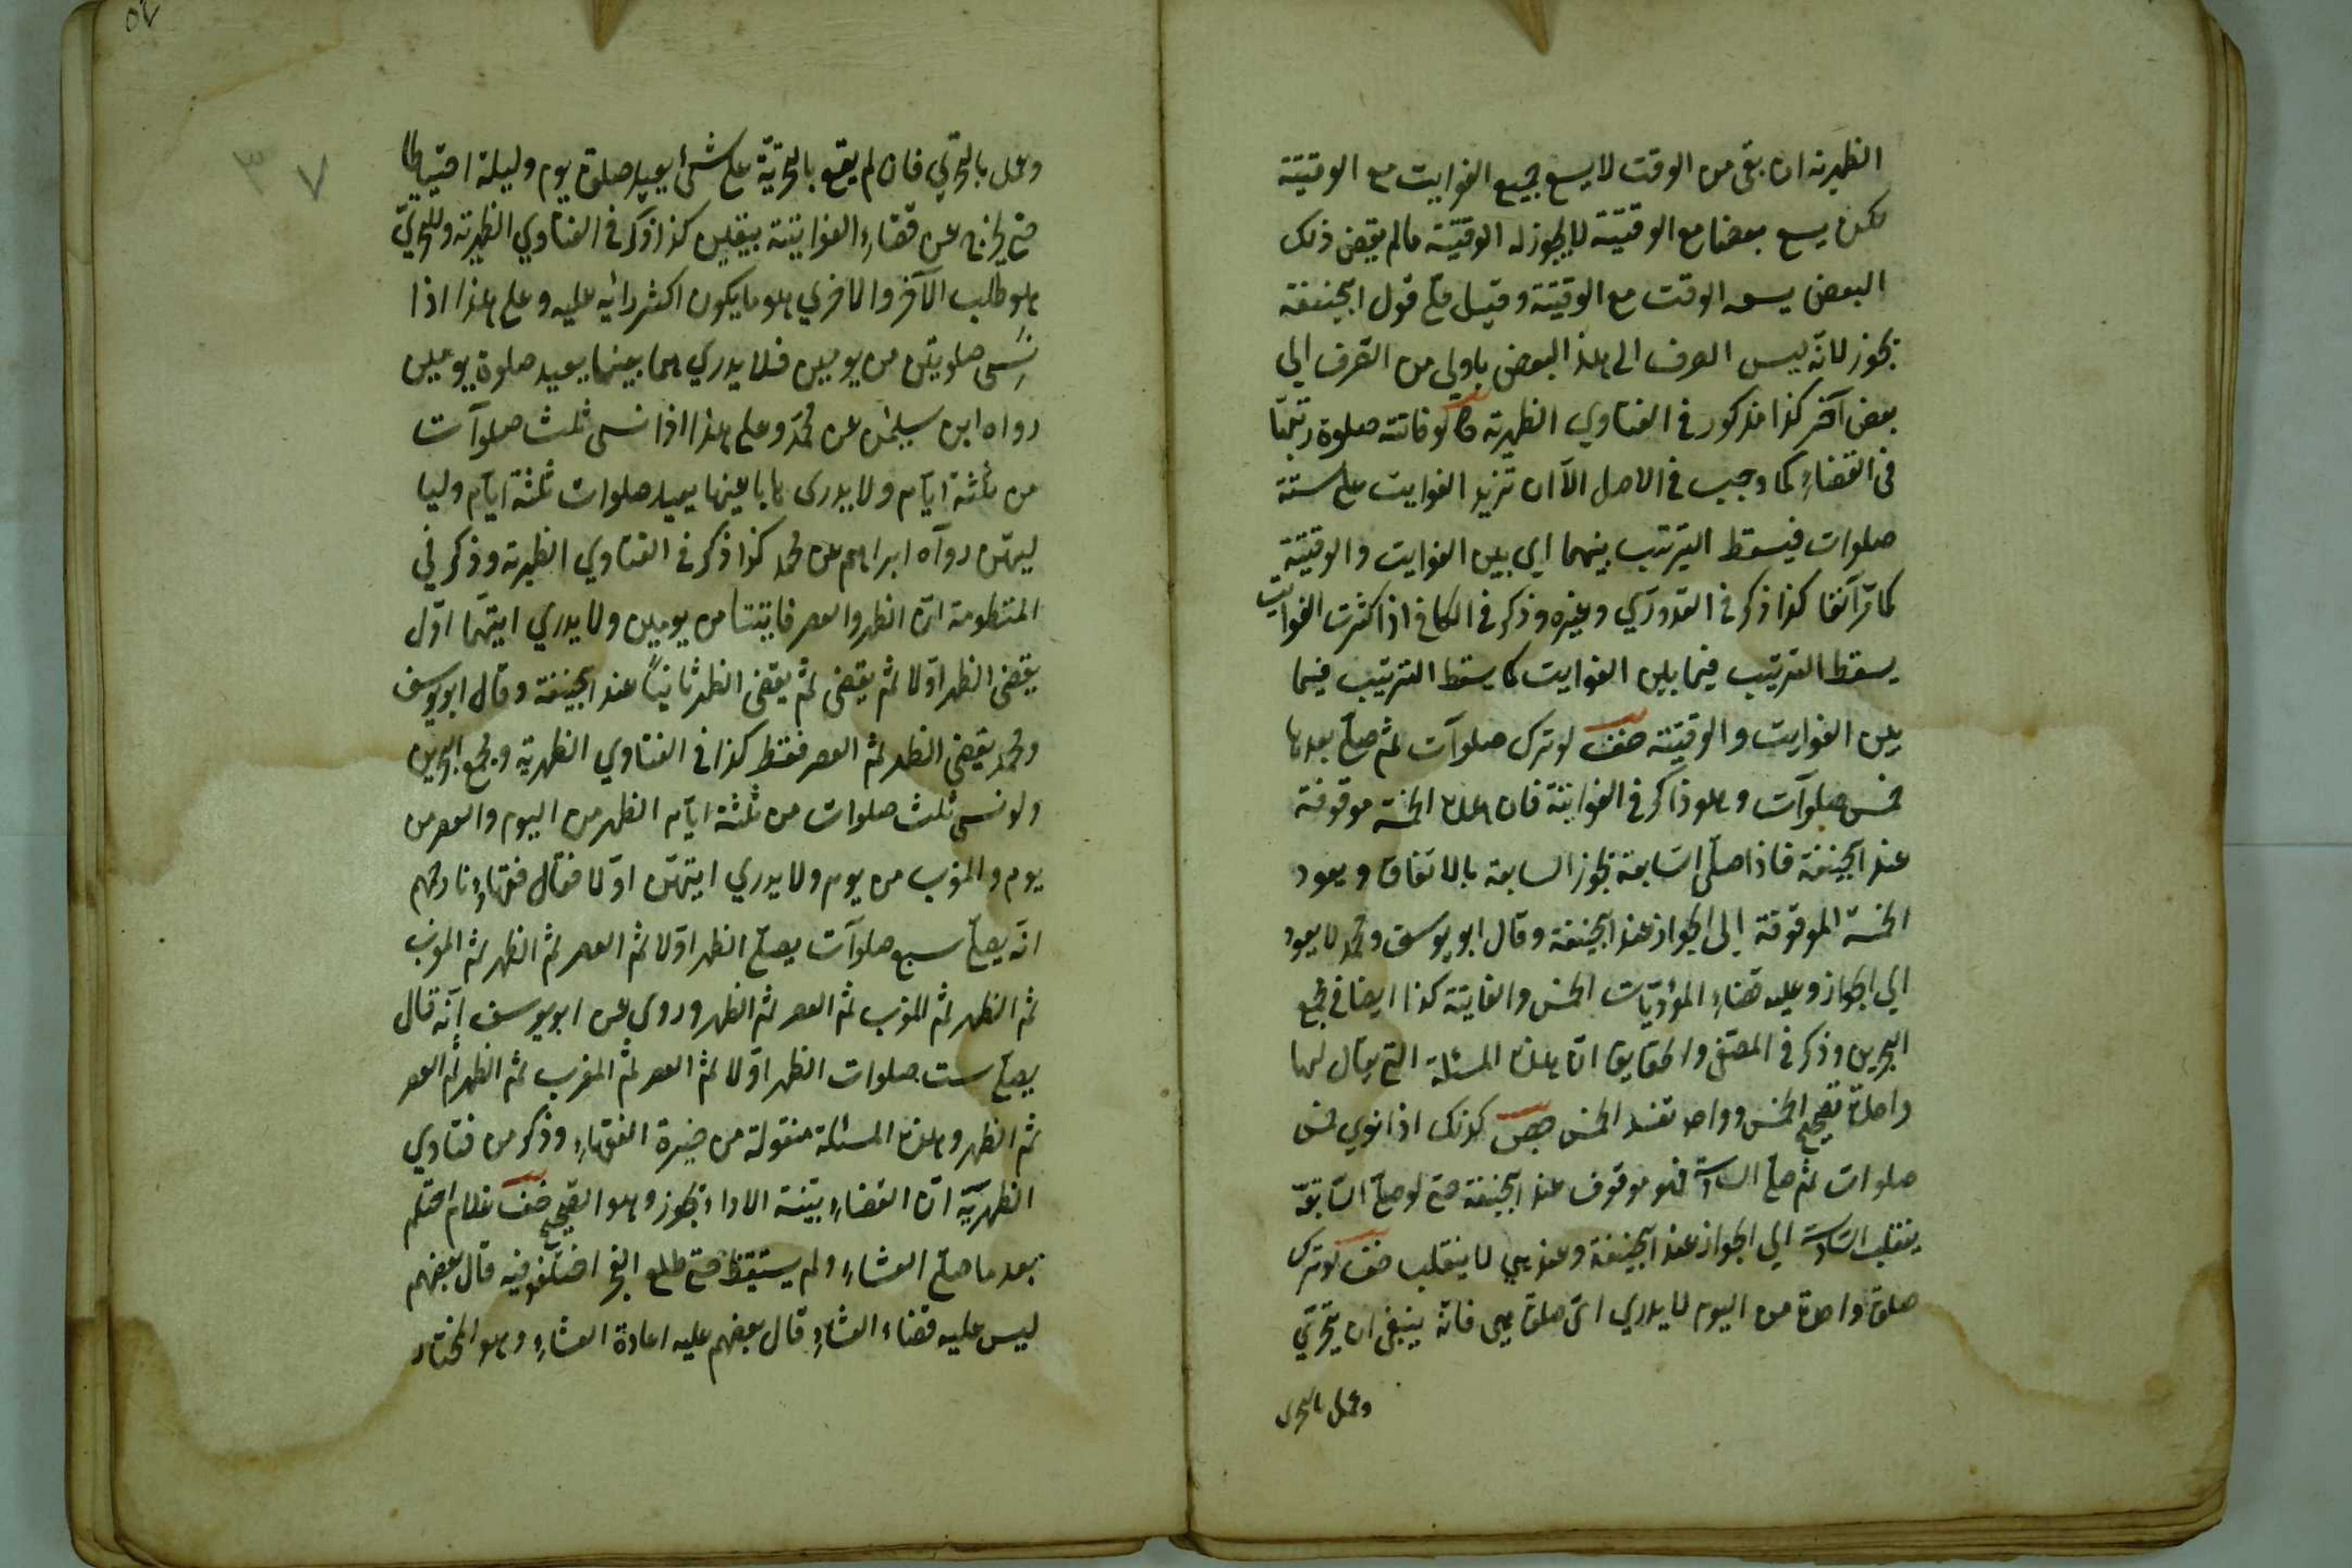 الظهيرية ان بقى من الوقت لا يسع جميع الفوايت مع الوقتية
لكن يسع بعضها مع الوقتيّة لا يجوز له الوقتيّة ما لم يقض ذلك
البعض يسعه الوقت مع الوقتية وقيل على قول ابيحنيفة
يجوز لانّه ليس الصرف الى هذا البعض باولى من الصّرف الي
بعض آخر كذا مذكور في الفتاوي الظهيرية لو فاتته صلوة رتّبها
في القضاء كما وجب في الاصل الّا ان تزيد الفوايت على ستة
صلوات فيسقط الترتيب بينهما اي بين الفوايت والوقتيّة
كما مرّ آنفا كذا ذكر في القدوري وغيره وذكر في الكافي اذا كثرت الفوايت
يسقط الترتيب فيما بين الفوايت كما يسقط الترتيب فيما
بين الفوايت والوقتيّة لو ترك صلوآت ثم صلّى بعدها
خمس صلوآت وهو ذاكر في الفوايتة فان هذه الخمسة موقوفة
عند ابيحنيفة فاذا صلّى السّابعة يجوز السابعة بالاتفاق ويعود
الخمسة الموقوفة الى الجواز عند ابيحنيفة وقال ابو يوسف ومحمد لا يعود
الي الجواز وعليه قضاء المؤديّات الخمس والفايتة كذا ايضا في مجمع
البحرين وذكر في المصفّى والحقايق انّ هذه المسئلة التي يقال لها
واحدة تصحح الخمس وواحد تفسد الخمس كذلك اذا نوي خمس
صلوات ثم صلّى السادسة فهو موقوف عند ابيحنيفة حتى لو صلّى السّابعة
ينقلب السّادسة الي الجواز عند ابيحنيفة وعندهما لا ينقلب لو ترك
صلوة واحدة من اليوم لا يدري ايّ صلوة هي فانّه ينبغي ان يتحرّي
وعمل بالتحرى
وعمل بالتحرّي فان لم يقع بالتحرّيّة على شئ يعيد صلوة يوم وليلة احتياطا
حتى يخرج عن قضاء الفوايتة بيقين كذا ذكر في الفتاوي الظهيرية والتحرّيّ
هو طلب الآخر والاخري هو ما يكون اكثر رائيه عليه وعلى هذا اذا
نسى صلوتين من يومين فلا يدري هما بعينها يعيد صلوة يومين
رواه ابن سليمن عن محمّد وعلى هذا اذا نسى ثلث صلوآت
من ثلثة ايّام ولا يدرى ها باعينها يعيد صلوات ثلثة ايّام وليا
ليهنّ روآه ابراهيم عن محمد كذا ذكر في الفتاوي الظهيرية وذكر في
المنظومة انّ الظهر والعصر فايتتا من يومين ولا يدري ايتهما اوّل
يقضي الظهر اوّلا ثم يقضي ثم يقضى الظهر ثانياً عند ابيحنيفة وقال ابو يوسف
ومحمد يقضى الظهر ثم العصر فقط كذا في الفتاوي الظهيرية ومجمع البحرين
ولو نسى ثلث صلوات من ثلثة ايّام الظهر من اليوم والعصر من
يوم والمغرب من يوم ولا يدري ايتهنّ اوّلا فقال فقهاؤنا رحمهم
انّه يصلّى سبع صلوآت يصلّى الظهر اوّلا ثم العصر ثم الظهر ثم المغرب
ثم الظهر ثم المغرب ثم العصر ثم الظهر وروى عن ابو يوسف انّه قال
يصلّى ست صلوات الظهر اوّلا ثم العصر ثم المغرب ثم الظهر ثم العصر
ثم الظهر وهذه المسئلة منقولة من خيرة الفقهاء وذكر من فتاوي
الظهريّة انّ القضاء بنية الاداء يجوز وهو الصحيح غلام احتلم
بعد ما صلّى العشاء ولم يستيقظ حتى طلع الفجر اختلفو فيه قال بعضهم
ليس عليه قضاء العشاء قال بعضهم عليه اعادة العشاء وهو المختار